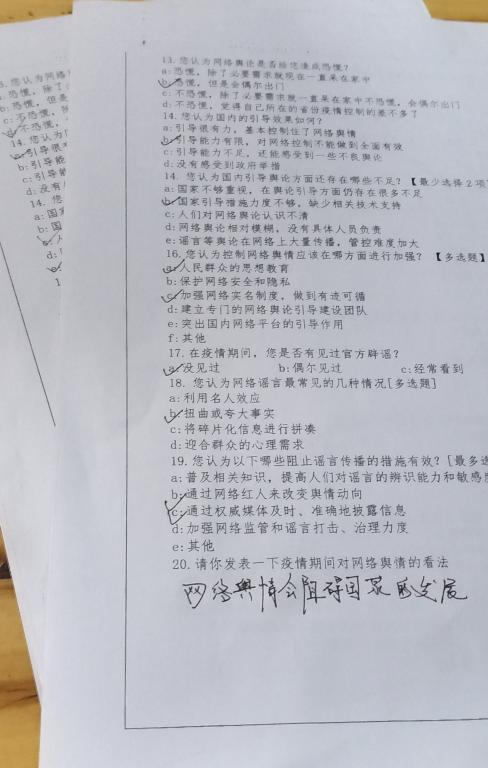 13. 您认为网络舆论是否给您造成恐慌？
a:恐慌，除了必要需求就现在一直呆在家中
b:恐慌，但是会偶尔出门
c:不恐慌，除了必要需求就一直呆在家中不恐慌，会偶尔出门
d:不恐慌，觉得自己所在的省份疫情控制的差不多了
14. 您认为国内的引导效果如何？
a:引导很有力，基本控制住了网络舆情
b:引导能力有限，对网络控制不能做到全面有效
c:引导能力不足，还能感受到一些不良舆论
d:没有感受到政府举措
14. 您认为国内引导舆论方面还存在哪些不足？【最少选择2项
a:国家不够重视，在舆论引导方面仍存在很多不足
b:国家引导措施力度不够，缺少相关技术支持
c:人们对网络舆论认识不清
d:网络舆论相对模糊，没有具体人员负责
e:谣言等舆论在网络上大量传播，管控难度加大
16. 您认为控制网络舆情应该在哪方面进行加强？【多选题】
a:人民群众的思想教育
b:保护网络安全和隐私
c:加强网络实名制度，做到有迹可循
d:建立专门的网络舆论引导建设团队
e:突出国内网络平台的引导作用
f:其他
17. 在疫情期间，您是否有见过官方辟谣？
a:没见过 b:偶尔见过 c:经常看到
18. 您认为网络谣言最常见的几种情况[多选题]
a:利用名人效应
b:扭曲或夸大事实
c:将碎片化信息进行拼凑
d:迎合群众的心理需求
19. 您认为以下哪些阻止谣言传播的措施有效？[最多选
a:普及相关知识，提高人们对谣言的辨识能力和敏感
b:通过网络红人来改变舆情动向
c:通过权威媒体及时、准确地披露信息
d:加强网络监管和谣言打击、治理力度
e:其他
20. 请你发表一下疫情期间对网络舆情的看法
网络舆情会阻碍国家的发展